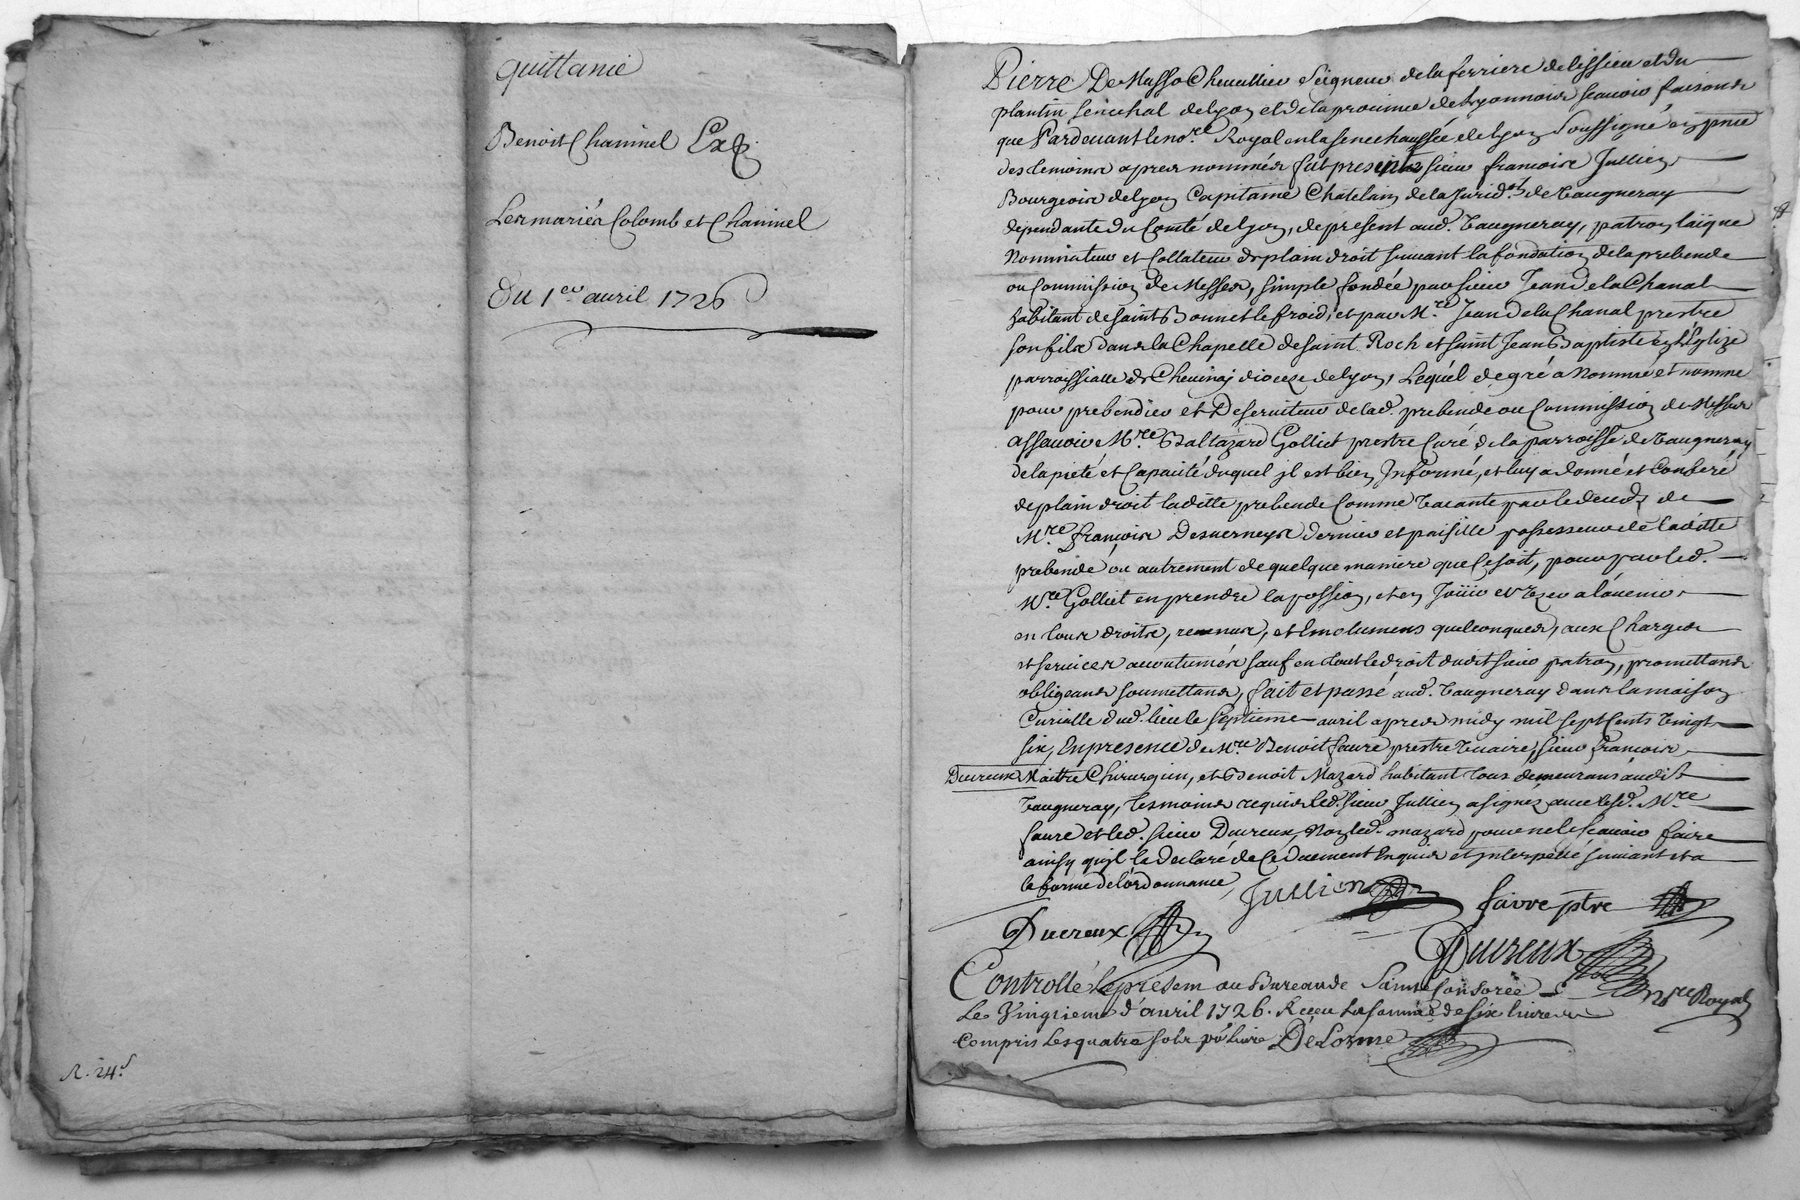 quittance
Benoist Chaninel Exp.
Les mariés Colomb et Chaninel
Du 1er auril 1726
R. 24s
Pierre De Masso Cheuallier Seigneur de la ferriere de lissieu et du
plantin senechal de Lyon et de la prouince de Lyonnois scauoir faisons
que Pardeuant le nore. Royal en la senechaussée de Lyon soussigné en pnce
des temoins apres nommés fut present sieur francois Jullien
Bourgeois de Lyon Capitaine Chatelain de la Juridon. de Vaugneray
dependante du Comté de Lyon, de present aud. Vaugneray, patron laïque
Nominateur et Collateur de plain droit suiuant la fondation de la prebende
ou Commission de Messes, simple fondée par sieur Jean de la Chanal
habitant de saint Bonnet le froid, et par Mre. Jean de la Chanal prestre
son fils dans la Chapelle de saint Roch et saint Jean Baptiste en L'Eglize
parroissialle de Cheuinaj dioceze de Lyon, Lequel de gré a Nommé et nomme
pour prebendier et Deseruiteur de lad. prebende ou Commission de Messes
assauoir Mre. Baltazard Golliet prestre Curé de la parroisse de Vaugneray
de la pieté et Capacité duquel jl est bien Informé, et luy a donné et Conferé
de plain droit laditte prebende Comme Vacante par le deceds de
Mre. françois Desuerneys dernier et paisille possesseur de laditte
prebende ou autrement de quelque maniere que Ce soit, pour par led.
Mre. Golliet en prendre la possion, et en Joüir et Vzer a l'auenir
en tous droits, reuenus, et Emolumens quelconques, aux Charges
et seruices acoutumés sauf en tout le droit dudit sieur patron, promettans
obligeans soumettans, fait et passé aud. Vaugneray dans la maison
Curialle dud. lieu le septieme auril apres midy mil sept Cents Vingt
six, En presence de Mre. Benoit faure prestre Vicaire, sieur francois
Ducreux Maitre Chirurgien, et Benoit Mazard habitant tous demeurans audit
Vaugneray, tesmoins requis led. sieur Jullien a signéz auec led. Mre
faure et led. sieur Ducreux, Non led. mazard pour ne le scauoir faire
ainsy qu'jl le declaré de Ce duement Enquis et jnterpellé suiuant et a
la forme de l'ordonnance
Jullien favre ptre
Ducreux Ducreux
nre Royal
Controllé le present au Bureau de Sainte Consorce
Le Vingtieme d'auril 1726. Receu la somme de six liures
Compris Les quatre sols pr Liure DeLorme